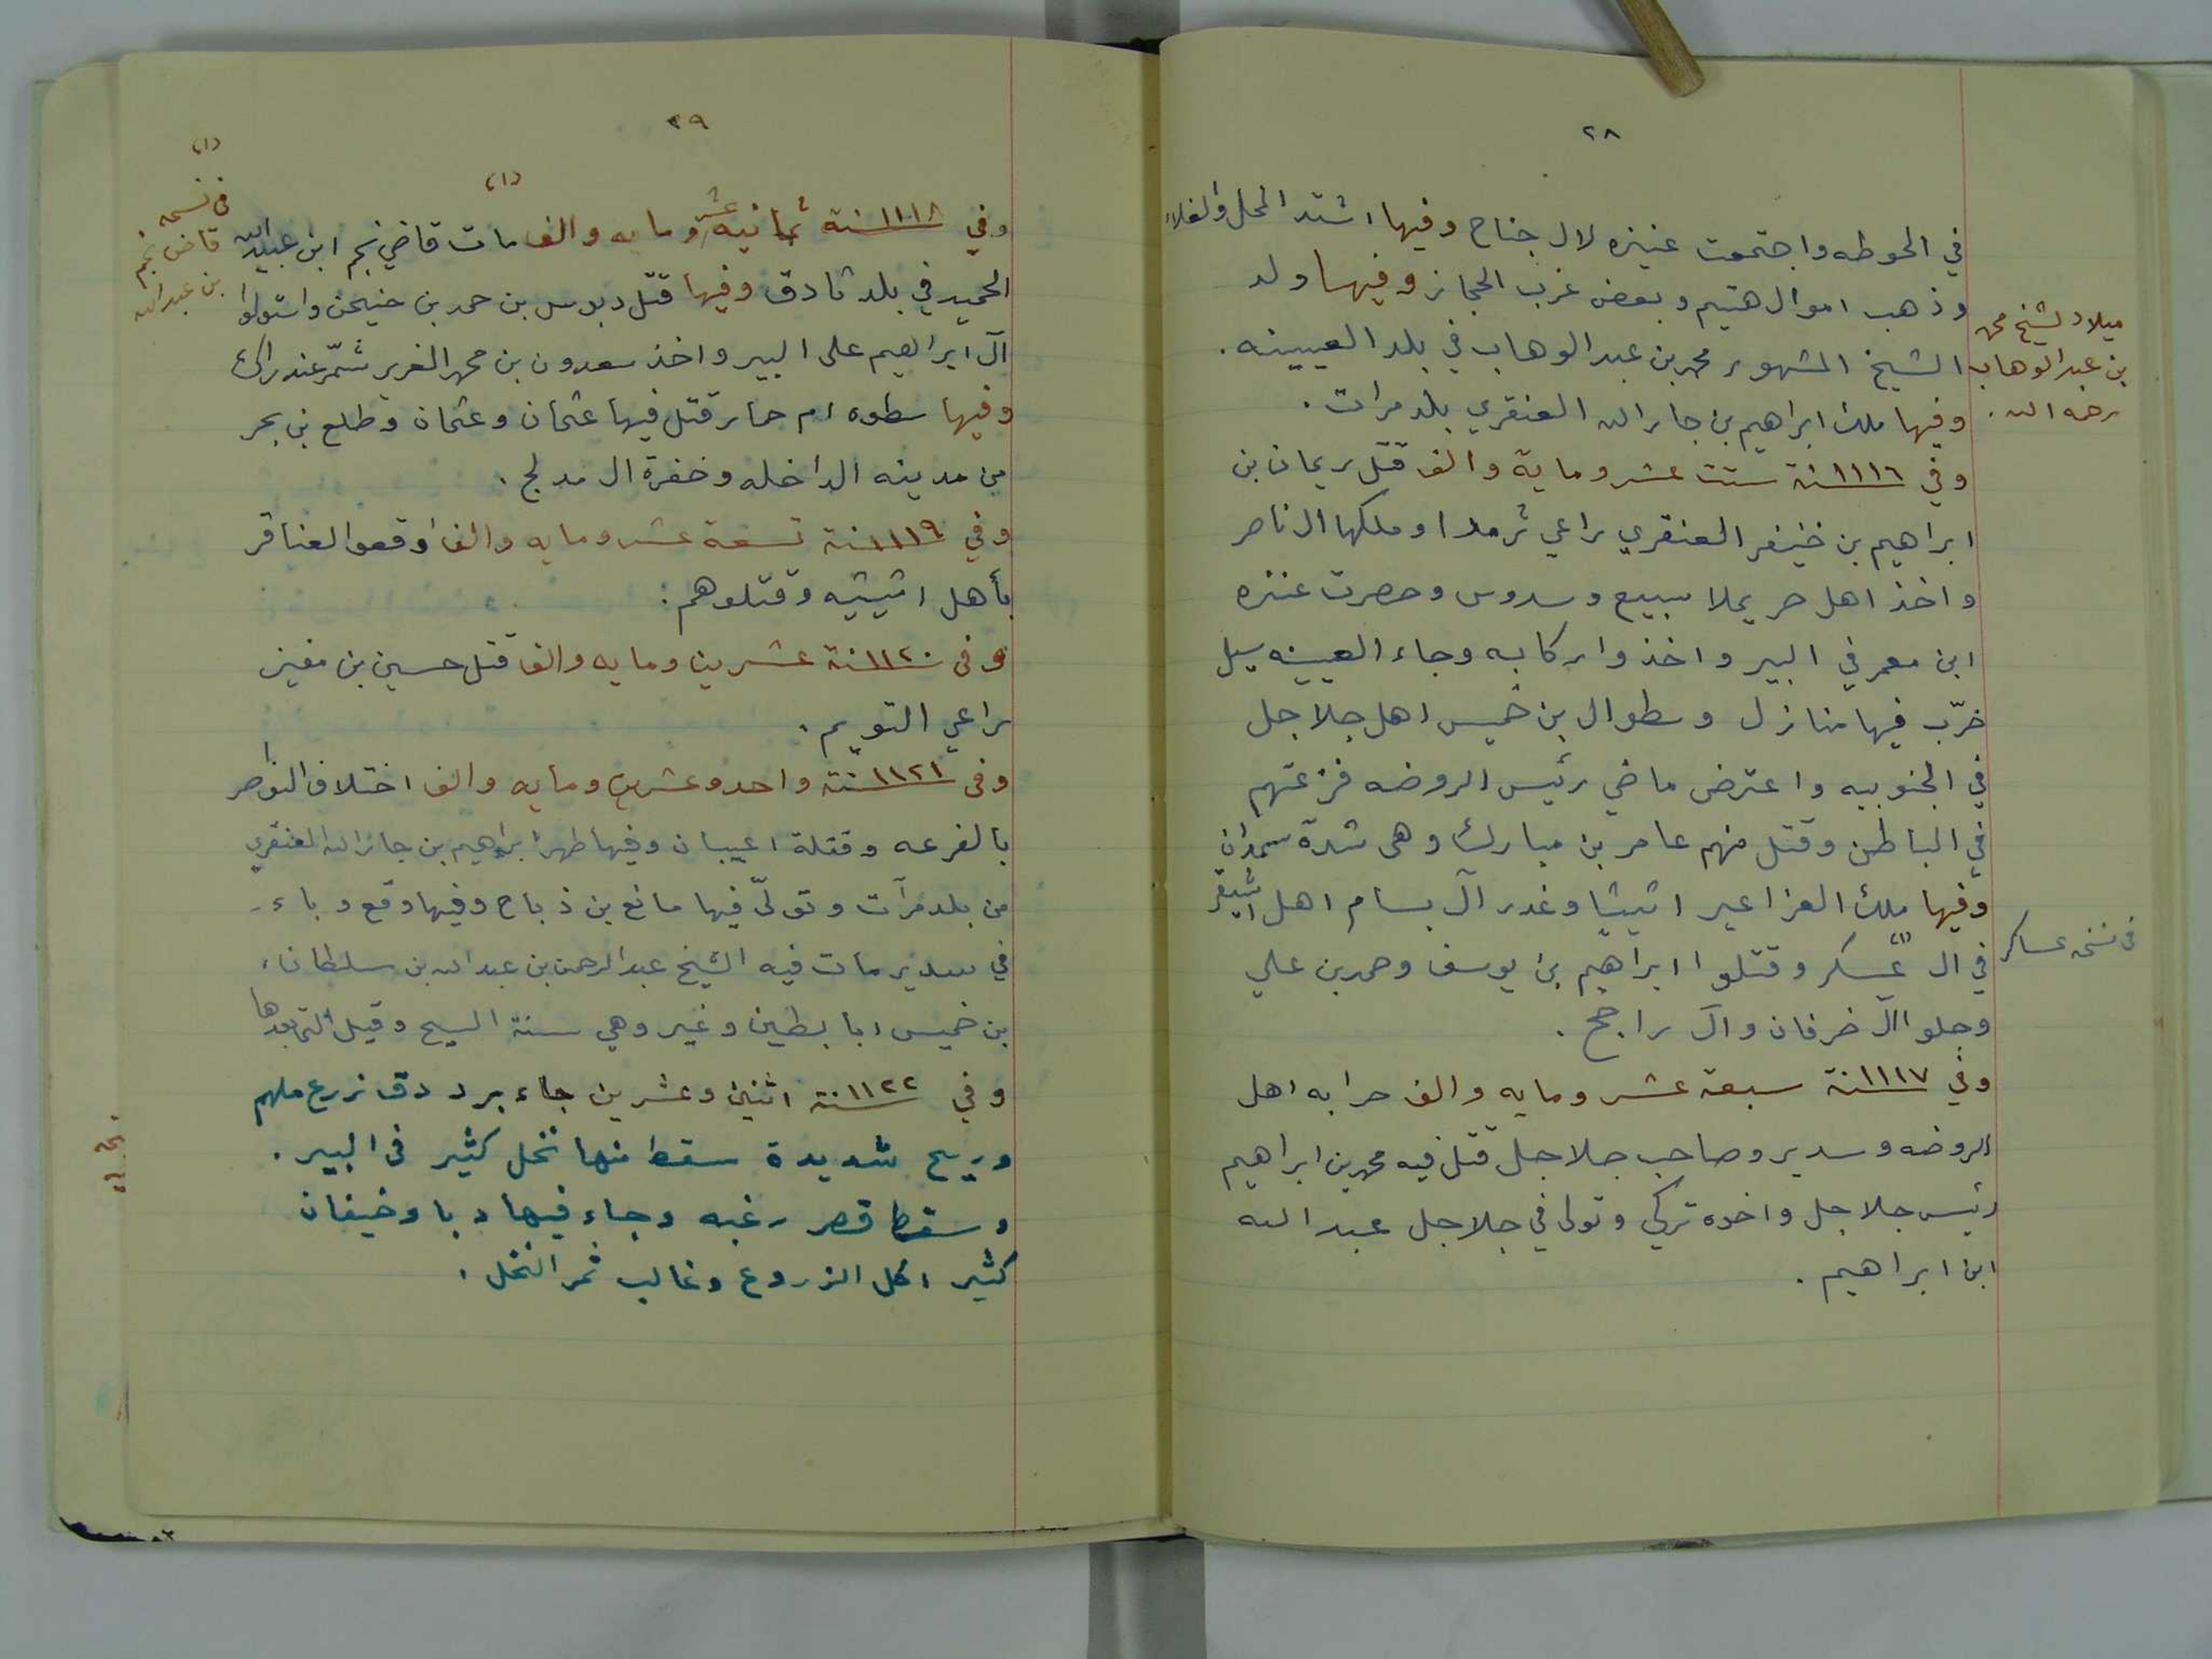 ٢٨
في الحوطه واجتمعت عنيزه لال جناح وفيها اشتد المحل والغلاء
وذهب اموال هتيم وبعض غرب الحجاز وفيها ولد
الشيخ المشهور محمد بن عبدالوهاب في بلد العيينه .
وفيها ملك ابراهيم بن جارالله العنقري بلد مرات .
ميلاد الشيخ محمد
بن عبدالوهاب
رحمه الله .
وفي ١١١٦سنة ستت عشر وماية والف قتل ريمان بن
ابراهيم بن خنيفر العنقري راعي ثرمدا وملكها ال ناصر
واخذ اهل حريملا سبيع وسدوس وحصرت عنزه
ابن معمر في البير واخذوا ركابه وجاء العيينه سيل
خرّب فيها منازل وسطوال بن خميس اهل جلاجل
في الجنوبيه واعترض ماضي رئيس الروضه فزعتهم
في الباطن وقتل منهم عامر بن مبارك وهى شدة سمدان
وفيها ملك العزاعير اثيثيا وغدر آل بسام اهل اشيقر
في ال (١) عسكر وقتلوا ابراهيم بن يوسف وحمد بن علي
في نسخه عساكر
وجلو اآل خرفان وآل راجح .
وفي ١١١٧سنة سبعة عشر ومايه والف حرابه اهل
الروضه وسدير وصاحب جلاجل قتل فيه محمد بن ابراهيم
رئيس جلاجل واخوه تركي وتولى في جلاجل عبدالله
ابن ابراهيم .
٢٩
(١)
وفي ١١١٨سنة ثمانية عشر ومايه والف مات قاضي نجم ابن عبيدالله
(١)
في نسخه
قاضي نجم
بن عبدالله
الحميد في بلد ثادق وفيها قتل دبوس بن حمد بن حنيحن واستولوا
آل ابراهيم على البير واخذ سعدون بن محمد الغرير شمّر عند
وفيها سطوه ام حمار قتل فيها عثمان وعثمان وطلع بن بحر
من مدينه الداخله وخفرة ال مدلج .
وفي ١١١٩سنة تسعة عشر ومايه والف اوقعوا العناقر
بأهل اثيثيه وقتلوهم :
وفى ١١٢٠سنة عشرين ومايه والف قتل حسين بن مفيز
راعي التويم .
وفى ١١٢١سنة واحد وعشرين ومايه والف اختلاف النواصر
بالفرعه وقتلة اعيبان وفيها ظهر ابراهيم بن جارالله العنقري
من بلد مرآت وتولّى فيها مانع بن ذباح وفيها وقع وباء
في سدير مات فيه الشيخ عبدالرحمن بن عبدالله بن سلطان
بن خميس ابا بطين وغير وهي سنة السيح وقيل التي بعدها
وفي ١١٢٢سنة اثنين وعشرين جاء برد دق زرع ملهم
وريح شديدة سقط منها نخل كثير فى البير .
وسقط قصر رغبه وجاء فيها دبا وخيفان
كثير اكل الزروع وغالب ثمر النخل .